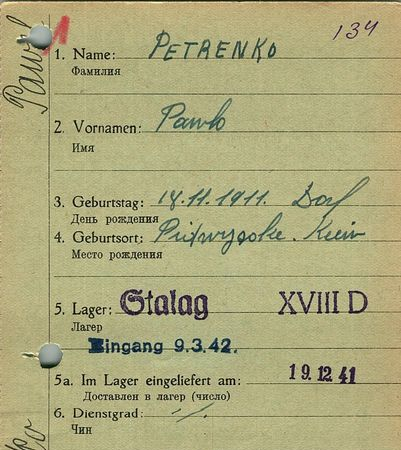 134
1. Name: PETRENKO
Фамилия
Pawlo
2. Vornamen: Pawlo
Имя
3. Geburtstag: 18.11.1911. Dorf
День рождения
4. Geburtsort: Kiew
Место рождения
5. Lager: Stalag XVIII D
Лагер
Eingang 9.3.42.
5a. Im Lager eingeliefert am: 19.12.41
Доставлен в лагер (число)
6. Dienstgrad: -/-
Чин